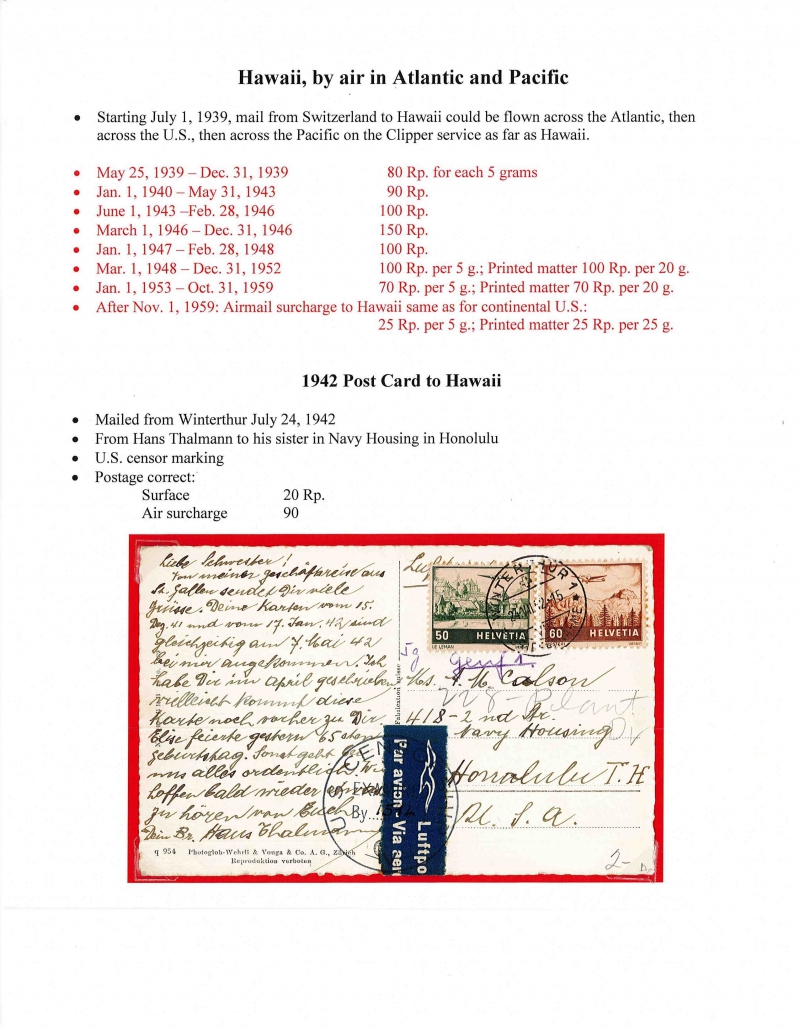 Hawaii, by air in Atlantic and Pacific
• Starting July 1, 1939, mail from Switzerland to Hawaii could be flown across the Atlantic, then
across the U.S., then across the Pacific on the Clipper service as far as Hawaii.
• May 25, 1939 – Dec. 31, 1939 80 Rp. for each 5 grams
• Jan. 1, 1940 – May 31, 1943 90 Rp.
• June 1, 1943 –Feb. 28, 1946 100 Rp.
• March 1, 1946 – Dec. 31, 1946 150 Rp.
• Jan. 1, 1947 – Feb. 28, 1948 100 Rp.
• Mar. 1, 1948 – Dec. 31, 1952 100 Rp. per 5 g.; Printed matter 100 Rp. per 20 g.
• Jan. 1, 1953 – Oct. 31, 1959 70 Rp. per 5 g.; Printed matter 70 Rp. per 20 g.
• After Nov. 1, 1959: Airmail surcharge to Hawaii same as for continental U.S.:
25 Rp. per 5 g.; Printed matter 25 Rp. per 25 g.
1942 Post Card to Hawaii
• Mailed from Winterthur July 24, 1942
• From Hans Thalmann to his sister in Navy Housing in Honolulu
• U.S. censor marking
• Postage correct:
Surface 20 Rp.
Air surcharge 90
Liebe Schwester!
Von meiner Geschäftsreise aus
St. Gallen sendet Dir viele
Grüsse. Deine Karten vom 15.
Dez. 41 und vom 17. Jan. 42 sind
gleichzeitig am 7. Mai 42
bei mir angekommen. Ich
habe Dir im April geschrieben
vielleicht kommt diese
Karte noch vorher zu Dir.
Elise feierte gestern 65 sten
Geburtstag. Sonst geht
uns alles ordentlich. Wir
hoffen bald wieder
zu hören von Euch
Dein Br. Hans Thalmann
q 954 Photoglob-Wehrli & Vouga & Co. A. G., Zürich
Reproduktion verboten
Fabrication Suisse
WINTERTHUR 1
50 HELVETIA
LE LEMAN
60 HELVETIA
Ms. A. M. Calson
228 Plant
418-2 nd Str.
Navy Housing
Honolulu T. H
U. S. A.
Par avion - Via aer
Luftpo
By
2-